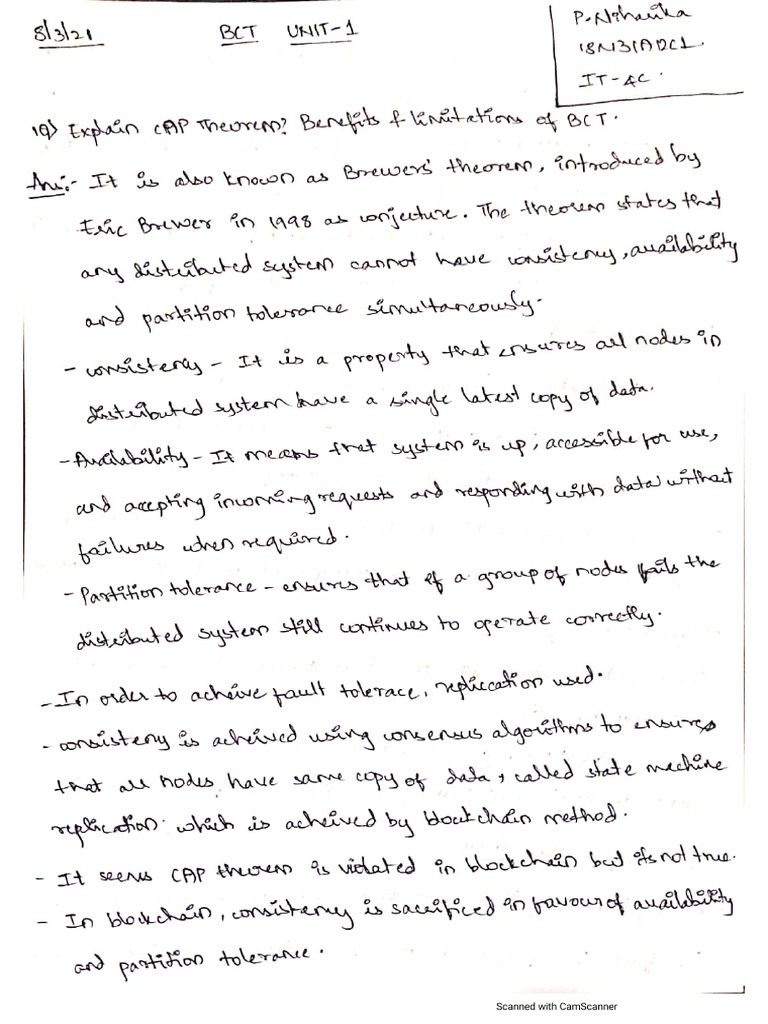 8/3/21
BCT UNIT-1
P. Niharika
18N31A12C1
IT-4C.
1Q) Explain CAP Theorem? Benefits & limitations of BCT.
Ans:- It is also known as Brewers' theorem, introduced by
Eric Brewer in 1998 as conjecture. The theorem states that
any distributed system cannot have consistency, availability
and partition tolerance simultaneously.
- consistency - It is a property that ensures all nodes in
distributed system have a single latest copy of data.
- Availability - It means that system is up, accessible for use,
and accepting incoming requests and responding with data without
failures when required.
- Partition tolerance - ensures that if a group of nodes fails the
distributed system still continues to operate correctly.
- In order to acheive fault tolerace, repliccation used.
- consisteny is acheived using consensus algorithms to ensures
that all nodes have same copy of data, called state machine
replication. which is acheived by blockchain method.
- It seems CAP theorem is violated in blockchain but its not true.
- In blockchain, consistency is sacrificed in favour of availability
and partition tolerance.
Scanned with CamScanner